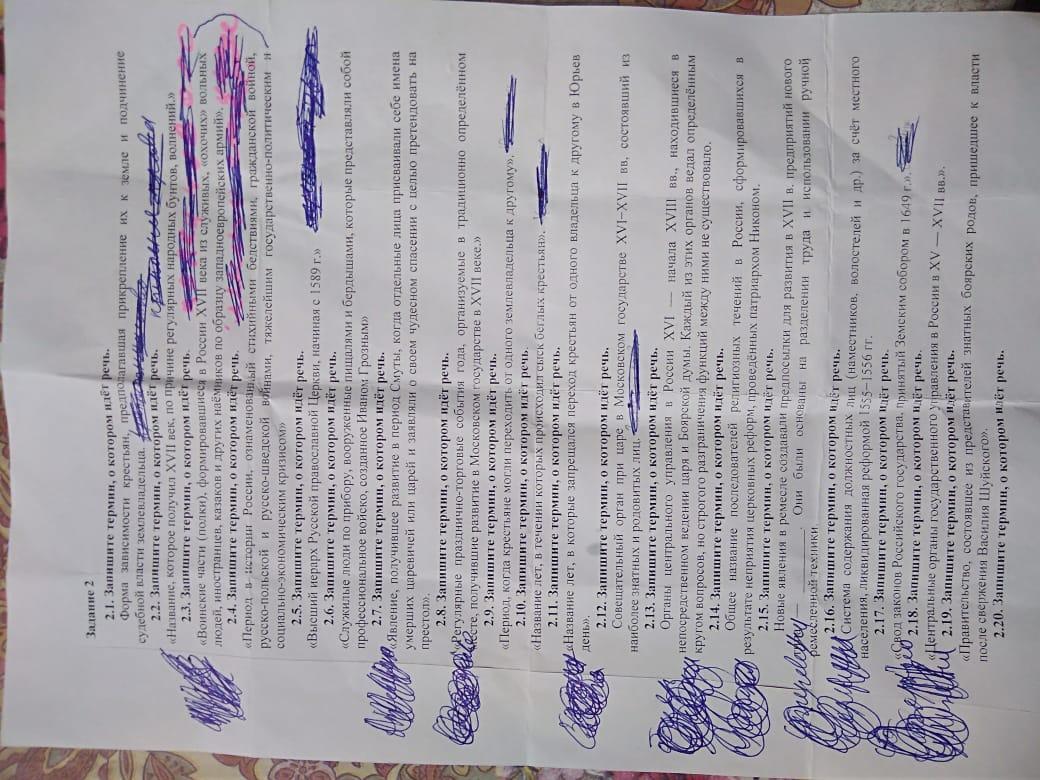 Задание 2
2.1. Запишите термин, о котором идёт речь.
Форма зависимости крестьян, предполагавшая прикрепление их к земле и подчинение
судебной власти землевладельца.
2.2. Запишите термин, о котором идёт речь.
«Название, которое получил XVII век, по причине регулярных народных бунтов, волнений.»
2.3. Запишите термин, о котором идёт речь.
«Воинские части (полки), формировавшиеся в России XVII века из служивых, «охочих» вольных
людей, иностранцев, казаков и других наёмников по образцу западноевропейских армий».
2.4. Запишите термин, о котором идёт речь.
«Период в истории России, ознаменованный стихийными бедствиями, гражданской войной,
русско-польской и русско-шведской войнами, тяжелейшим государственно-политическим и
социально-экономическим кризисом»
2.5. Запишите термин, о котором идёт речь.
«Высший иерарх Русской православной Церкви, начиная с 1589 г.»
2.6. Запишите термин, о котором идёт речь.
«Служилые люди по прибору, вооруженные пищалями и бердышами, которые представляли собой
профессиональное войско, созданное Иваном Грозным»
2.7. Запишите термин, о котором идёт речь.
«Явление, получившее развитие в период Смуты, когда отдельные лица присваивали себе имена
умерших царевичей или царей и заявляли о своем чудесном спасении с целью претендовать на
престол».
2.8. Запишите термин, о котором идёт речь.
«Регулярные празднично-торговые события года, организуемые в традиционно определённом
месте, получившие развитие в Московском государстве в XVII веке.»
2.9. Запишите термин, о котором идёт речь.
«Период, когда крестьяне могли переходить от одного землевладельца к другому».
2.10. Запишите термин, о котором идёт речь.
«Название лет, в течении которых происходит сыск беглых крестьян».
2.11. Запишите термин, о котором идёт речь.
«Название лет, в которые запрещался переход крестьян от одного владельца к другому в Юрьев
день».
2.12. Запишите термин, о котором идёт речь.
Совещательный орган при царе в Московском государстве XVI–XVII вв, состоявший из
наиболее знатных и родовитых лиц.
2.13. Запишите термин, о котором идёт речь.
Органы центрального управления в России XVI — начала XVIII вв., находившиеся в
непосредственном ведении царя и Боярской думы. Каждый из этих органов ведал определённым
кругом вопросов, но строгого разграничения функций между ними не существовало.
2.14. Запишите термин, о котором идёт речь.
Общее название последователей религиозных течений в России, сформировавшихся в
результате неприятия церковных реформ, проведённых патриархом Никоном.
2.15. Запишите термин, о котором идёт речь.
Новые явления в ремесле создавали предпосылки для развития в XVII в. предприятий нового
типа — ________. Они были основаны на разделении труда и использовании ручной
ремесленной техники.
2.16. Запишите термин, о котором идёт речь.
Система содержания должностных лиц (наместников, волостелей и др.) за счёт местного
населения, ликвидированная реформой 1555–1556 гг.
2.17. Запишите термин, о котором идёт речь.
«Свод законов Российского государства, принятый Земским собором в 1649 г.».
2.18. Запишите термин, о котором идёт речь.
«Центральные органы государственного управления в России в XV — XVII вв.».
2.19. Запишите термин, о котором идёт речь.
«Правительство, состоявшее из представителей знатных боярских родов, пришедшее к власти
после свержения Василия Шуйского».
2.20. Запишите термин, о котором идёт речь.